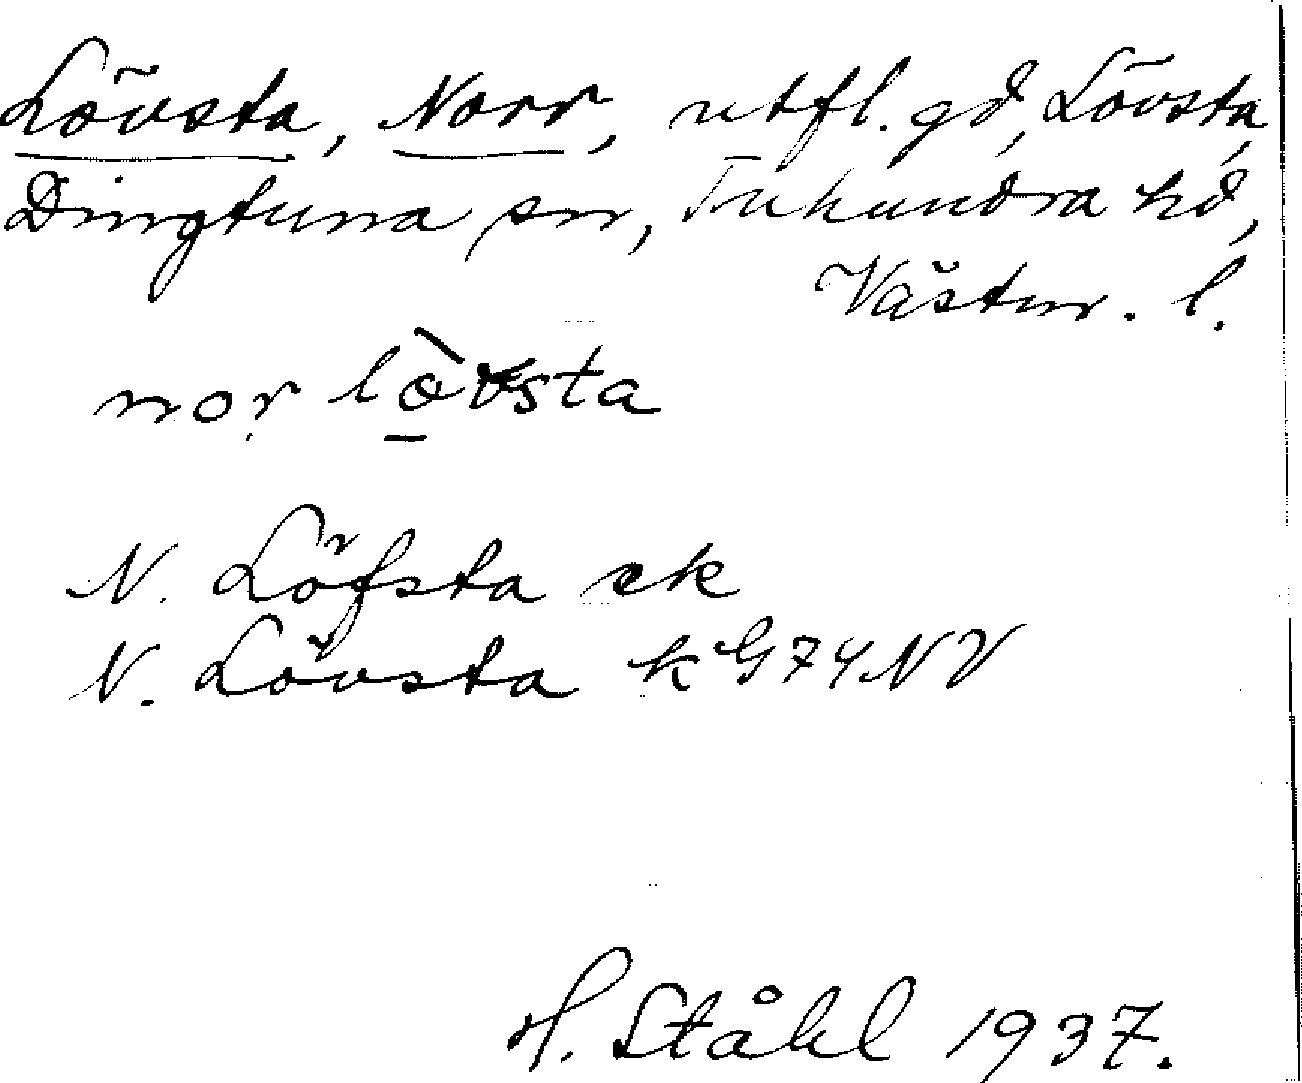 Lövsta, Norr, utfl. gd, Lövsta,
Dingtuna sn, Tuhundra hd,
Västm. l.
nor lòvsta
N. Löfsta ek
N. Lövsta k G74NV
H. Ståhl 1937.